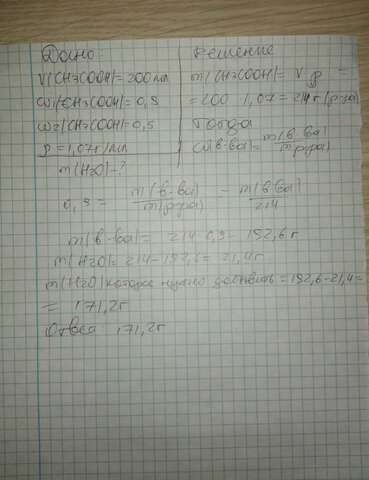 Дано
V(CH3COOH)=200мл
ω1(CH3COOH)=0,9
ω2(CH3COOH)=0,5
ρ=1,07г/мл
m(H2O)-?
Решение
m(CH3COOH)= V ρ =
=200 1,07=214г (р-ра)
Тогда
ω(в-ва)= m(в-ва)/m(р-ра)
0,9 = m(в-ва)/m(р-ра) = m(в-ва)/214
m(в-ва)= 214 0,9=192,6г
m(H2O)=214-192,6=21,4г
m(H2O) которое нужно добавить =192,6-21,4=
= 171,2г
171,2г